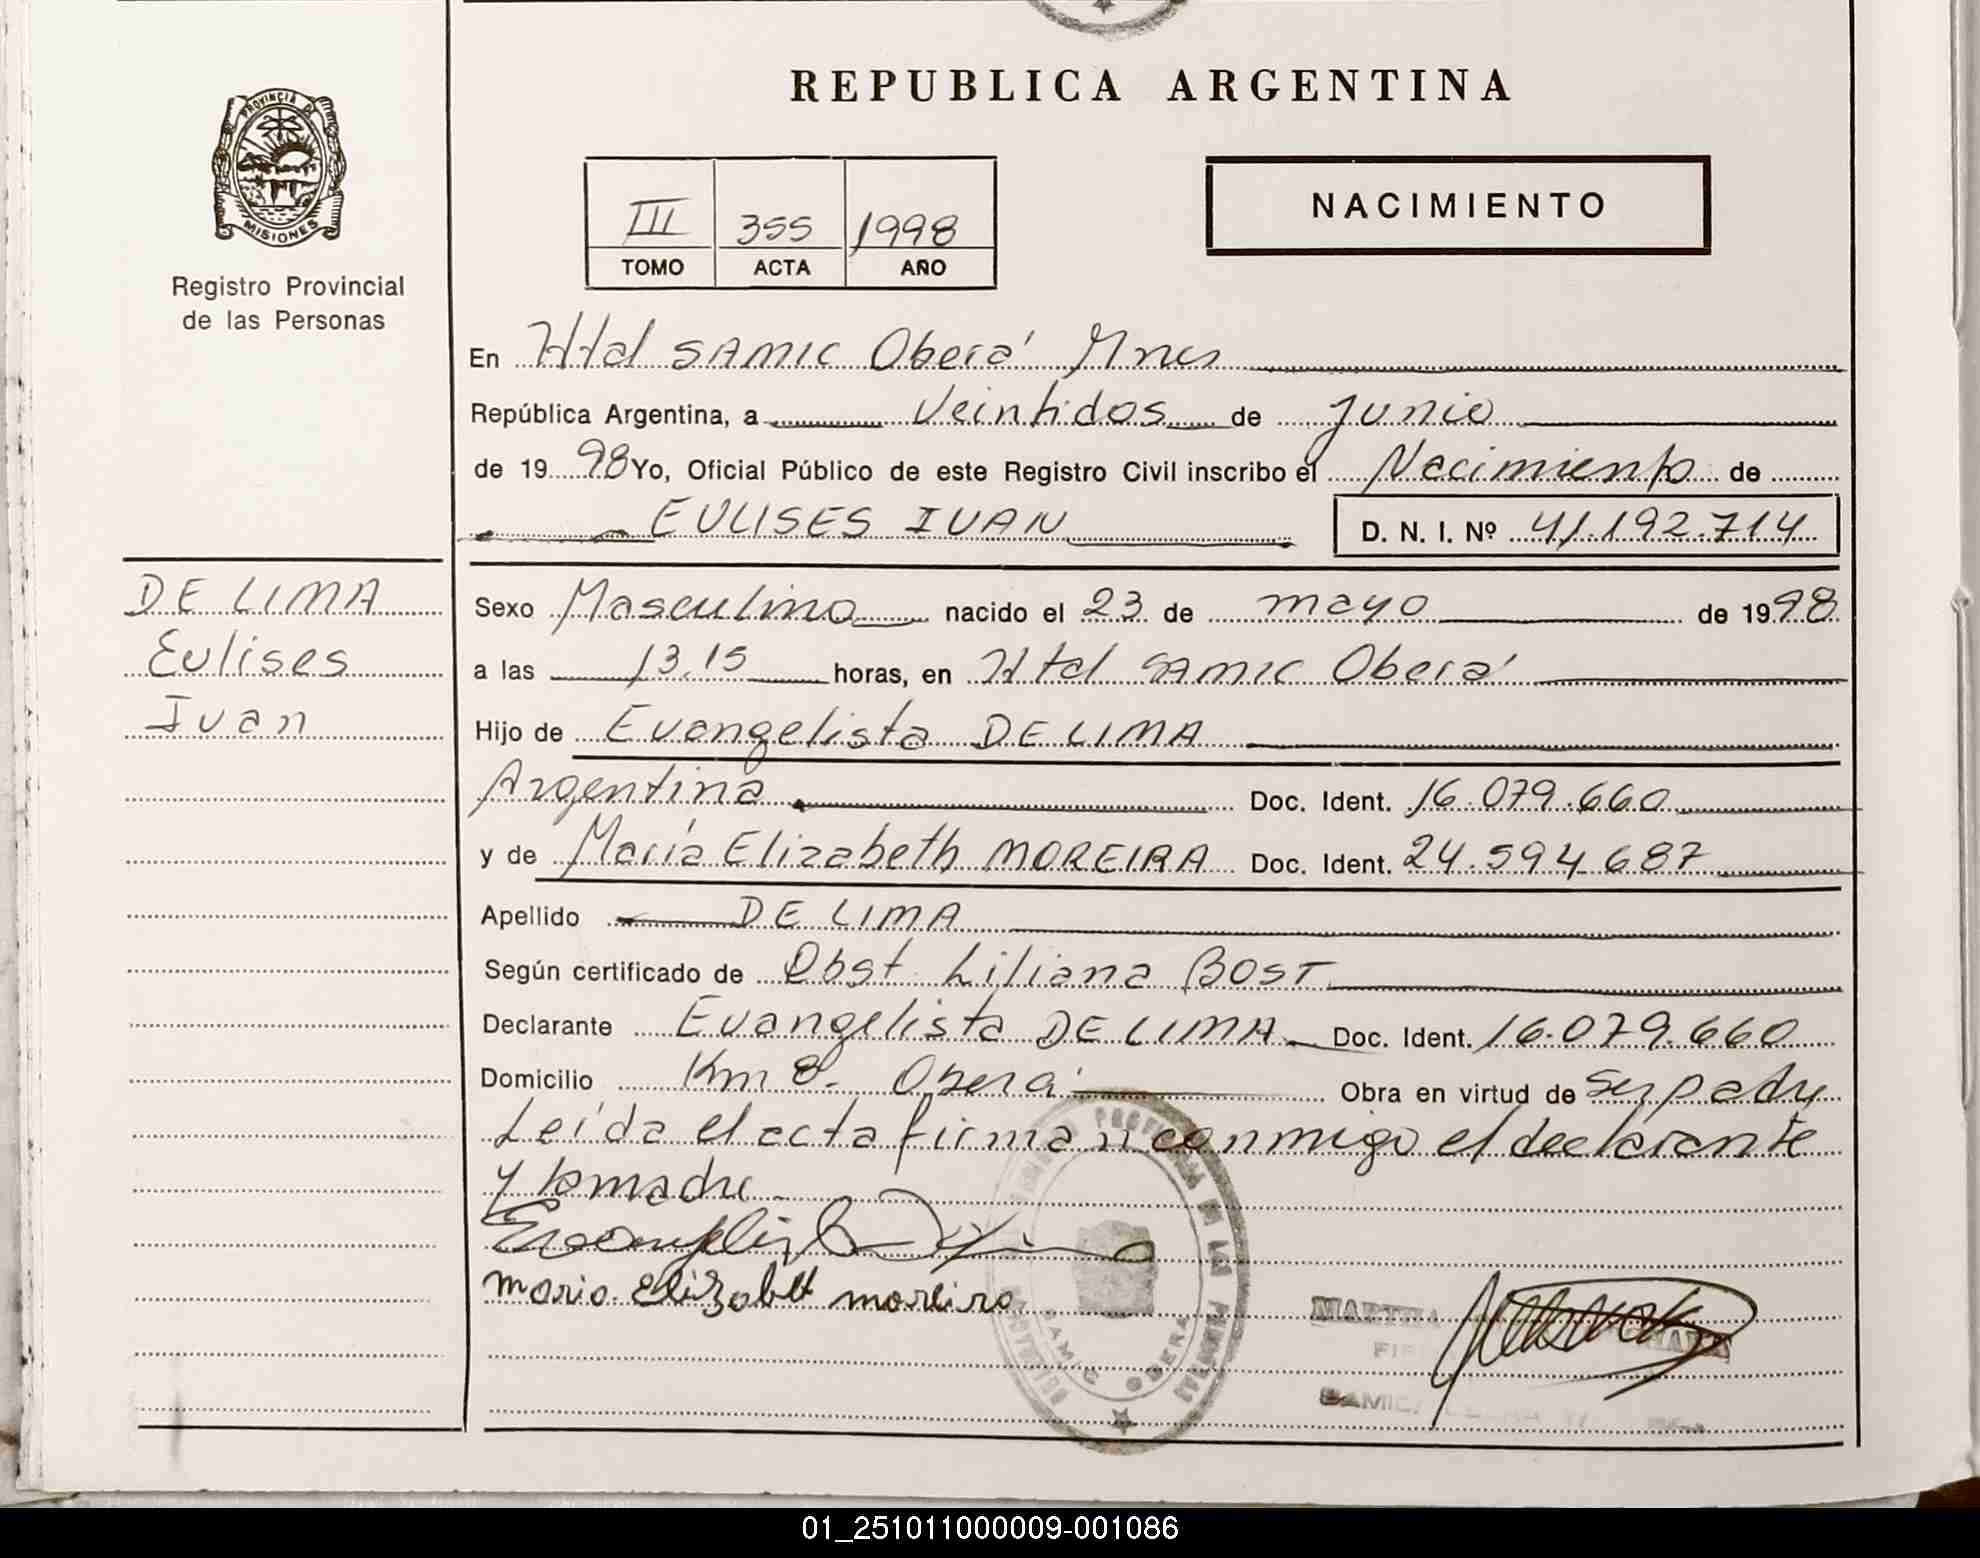 REPUBLICA ARGENTINA
PROVINCIA DE
MISIONES
Registro Provincial
de las Personas
III 355 1998
TOMO ACTA AÑO
NACIMIENTO
En Htal SAMIC Oberá Mnes
República Argentina, a Veintidos de Junio
de 1998 Yo, Oficial Público de este Registro Civil inscribo el Nacimiento de
EULISES IVAN D. N. I. Nº 41.192.714
DE LIMA
Eulises
Ivan
Sexo Masculino nacido el 23 de mayo de 1998
a las 13,15 horas, en Htal SAMIC Oberá
Hijo de Evangelista DE LIMA
Argentina Doc. Ident. 16.079.660
y de María Elizabeth MOREIRA Doc. Ident. 24.594.687
Apellido DE LIMA
Según certificado de Obst. Liliana BOST
Declarante Evangelista DE LIMA Doc. Ident. 16.079.660
Domicilio Km 8. Oberá Obra en virtud de Ser padre
Leída el acta firman conmigo el declarante
y la madre
Evangelista
Maria Elizabett moreira
MARTHA
SAMIC OBERA
SAMIC
01_251011000009-001086